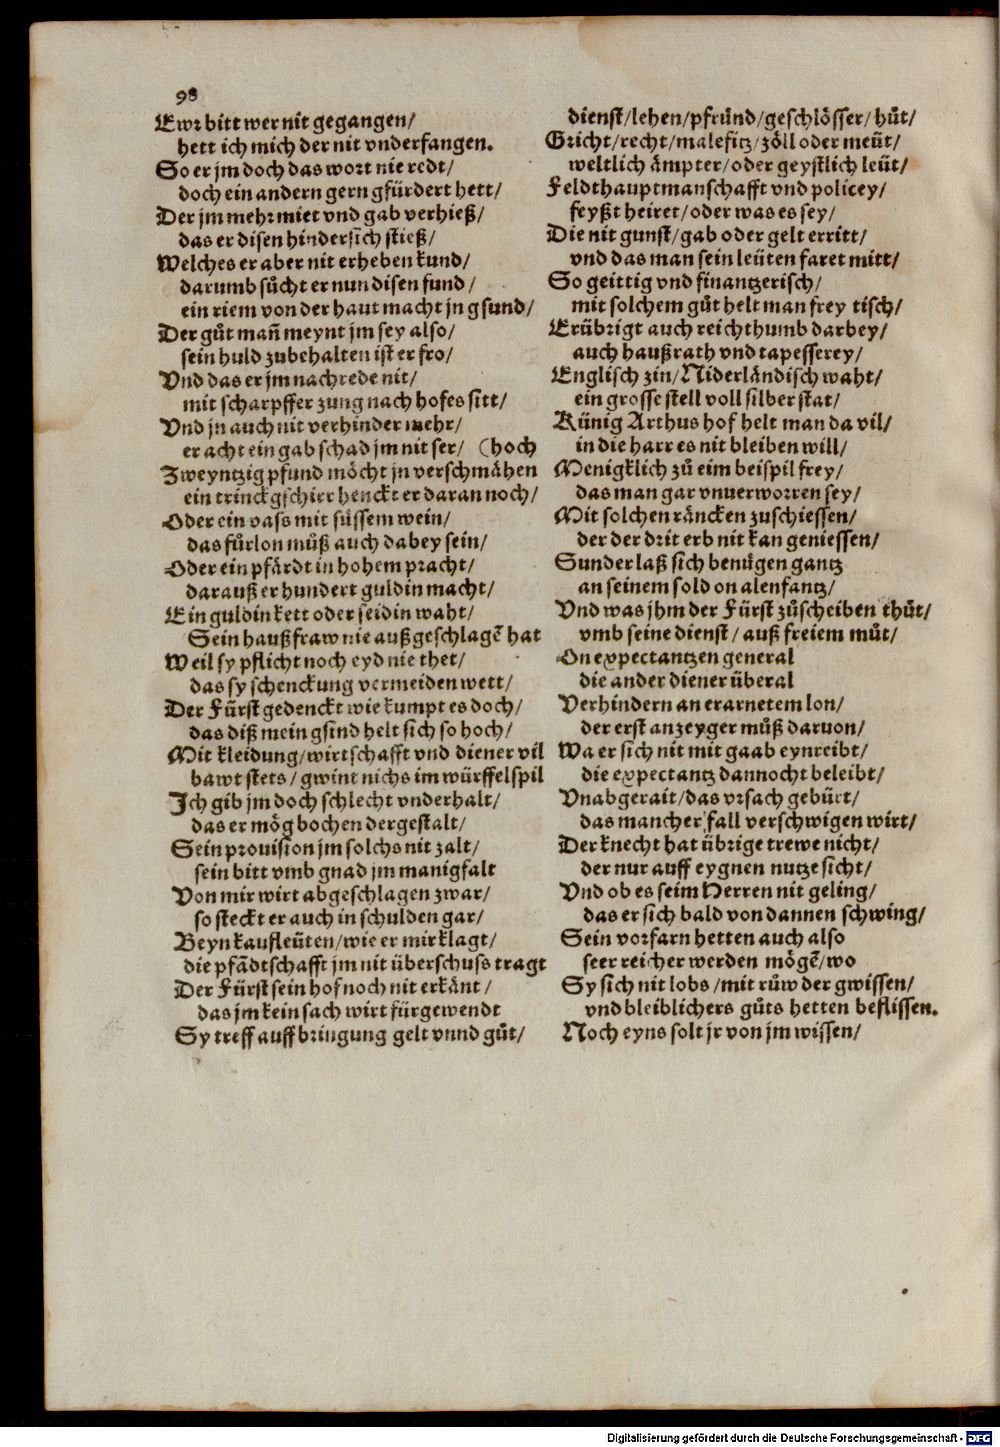 98
Ewr bitt wer nit gegangen/
hett ich mich der nit vnderfangen.
So er jm doch das wort nie redt/
doch ein andern gern gfürdert hett/
Der jm mehr miet vnd gab verhieß/
das er disen hindersich stieß/
Welches er aber nit erheben kund/
darumb sůcht er nun disen fund/
ein riem von der haut macht jn gsund/
Der gůt mañ meynt jm sey also/
sein huld zubehalten ist er fro/
Vnd das er jm nachrede nit/
mit scharpffer zung nach hofes sitt/
Vnd jn auch nit verhinder mehr/
er acht ein gab schad jm nit ser/ (hoch
Zweyntzig pfund möcht jn verschmähen
ein trinckgschirr henckt er daran noch/
Oder ein vass mit süssem wein/
das fůrlon můß auch dabey sein/
Oder ein pfärdt in hohem pracht/
darauß er hundert guldin macht/
Ein guldin kett oder seidin waht/
Sein haußfraw nie außgeschlagē hat
Weil sy pflicht noch eyd nie thet/
das sy schenckung vermeiden wett/
Der Fürst gedenckt wie kumpt es doch/
das diß mein gsind helt sich so hoch/
Mit kleidung/wirtschafft vnd diener vil
bawt stets/gwint nichs im würffelspil
Ich gib jm doch schlecht vnderhalt/
das er mög bochen dergestalt/
Sein prouision jm solchs nit zalt/
sein bitt vmb gnad jm manigfalt
Von mir wirt abgeschlagen zwar/
so steckt er auch in schulden gar/
Beyn kaufleüten/wie er mir klagt/
die pfādtschafft jm nit überschuss tragt
Der Fürst sein hof noch nit erkänt/
das jm kein sach wirt fürgewendt
Sy treff auffbringung gelt vnnd gůt/
dienst/lehen/pfründ/geschlösser/hůt/
Gricht/recht/malefitz/zöll oder meüt/
weltlich ämpter/oder geystlich leüt/
Feldthauptmanschafft vnd policey/
feyßt heiret/oder was es sey/
Die nit gunst/gab oder gelt erritt/
vnd das man sein leüten faret mitt/
So geittig vnd finantzerisch/
mit solchem gůt helt man frey tisch/
Erübrigt auch reichthumb darbey/
auch haußrath vnd tapesserey/
Englisch zin/Niderländisch waht/
ein grosse stell voll silber stat/
Künig Arthus hof helt man da vil/
in die harr es nit bleiben will/
Menigklich zů eim beispil frey/
das man gar vnuerworren sey/
Mit solchen räncken zuschiessen/
der der drit erb nit kan geniessen/
Sunder laß sich benügen gantz
an seinem sold on alenfantz/
Vnd was jhm der Fürst zůscheiben thůt/
vmb seine dienst/auß freiem můt/
On expectantzen general
die ander diener überal
Verhindern an erarnetem lon/
der erst anzeyger můß daruon/
Wa er sich nit mit gaab eynreibt/
die expectantz dannocht beleibt/
Vnabgerait/das vrsach gebürt/
das mancher fall verschwigen wirt/
Der knecht hat übrige trewe nicht/
der nur auff eygnen nutze sicht/
Vnd ob es seim Herren nit geling/
das er sich bald von dannen schwing/
Sein vorfarn hetten auch also
seer reicher werden mögē/wo
Sy sich nit lobs/mit růw der gwissen/
vnd bleiblichers gůts hetten beflissen.
Noch eyns solt jr von jm wissen/
Digitalisierung gefördert durch die Deutsche Forschungsgemeinschaft - DFG